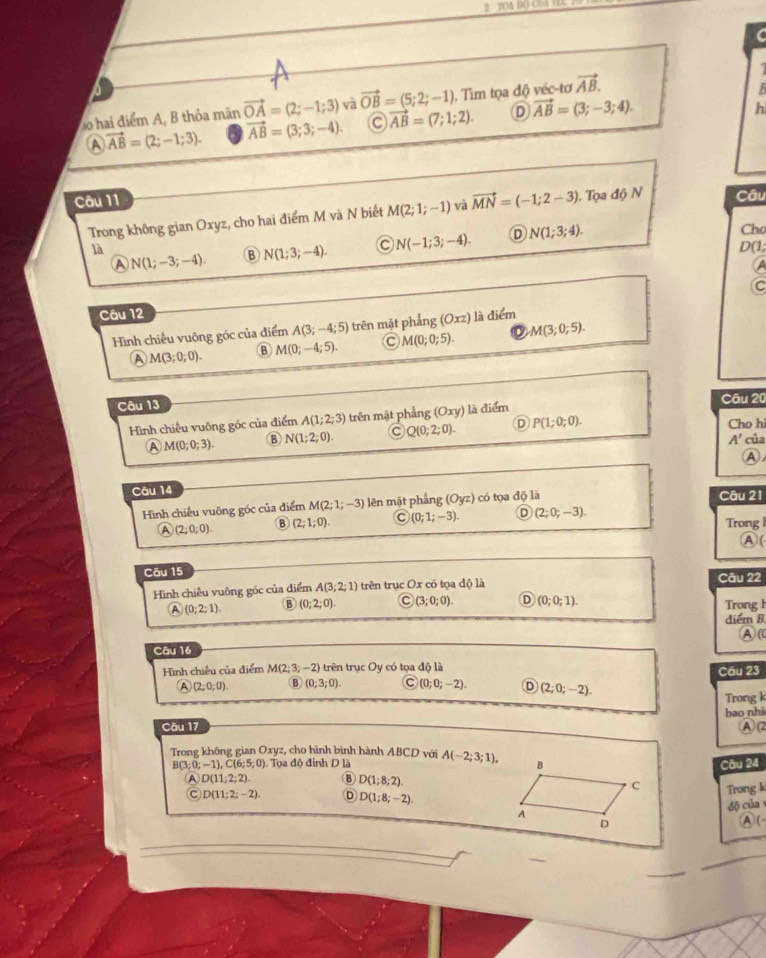 A
hai điểm A, B thỏa mãn $\overrightarrow{OA} = (2; -1; 3)$ và $\overrightarrow{OB} = (5; 2; -1)$. Tìm tọa độ véc-tơ $\overrightarrow{AB}$.
A $\overrightarrow{AB} = (2; -1; 3)$. $\overrightarrow{AB} = (3; 3; -4)$. C $\overrightarrow{AB} = (7; 1; 2)$. D $\overrightarrow{AB} = (3; -3; 4)$.
Câu 11
Trong không gian Oxyz, cho hai điểm M và N biết M(2; 1; −1) và $\overrightarrow{MN} = (-1; 2 - 3)$. Tọa độ N
là
A N(1; −3; −4). B N(1; 3; −4). C N(−1; 3; −4). D N(1; 3; 4).
Câu 12
Hình chiếu vuông góc của điểm A(3; −4; 5) trên mặt phẳng (Oxz) là điểm
A M(3; 0; 0). B M(0; −4; 5). C M(0; 0; 5). D M(3; 0; 5).
Câu 13
Hình chiếu vuông góc của điểm A(1; 2; 3) trên mặt phẳng (Oxy) là điểm
A M(0; 0; 3). B N(1; 2; 0). C Q(0; 2; 0). D P(1; 0; 0).
Câu 14
Hình chiếu vuông góc của điểm M(2; 1; −3) lên mặt phẳng (Oyz) có tọa độ là
A (2; 0; 0). B (2; 1; 0). C (0; 1; −3). D (2; 0; −3).
Câu 15
Hình chiếu vuông góc của điểm A(3; 2; 1) trên trục Ox có tọa độ là
A (0; 2; 1). B (0; 2; 0). C (3; 0; 0). D (0; 0; 1).
Câu 16
Hình chiếu của điểm M(2; 3; −2) trên trục Oy có tọa độ là
A (2; 0; 0). B (0; 3; 0). C (0; 0; −2). D (2; 0; −2).
Câu 17
Trong không gian Oxyz, cho hình bình hành ABCD với A(−2; 3; 1),
B(3; 0; −1), C(6; 5; 0). Tọa độ đỉnh D là
A D(11; 2; 2). B D(1; 8; 2).
C D(11; 2; −2). D D(1; 8; −2).
B
C
A
D
Câu
Cho
D(1;
A
C
Câu 20
Cho hi
A′ của
A
Câu 21
Trong
A (
Câu 22
Trong
điểm B
A (0
Câu 23
Trong k
bao nhi
A (2
Câu 24
Trong k
độ của
A (-